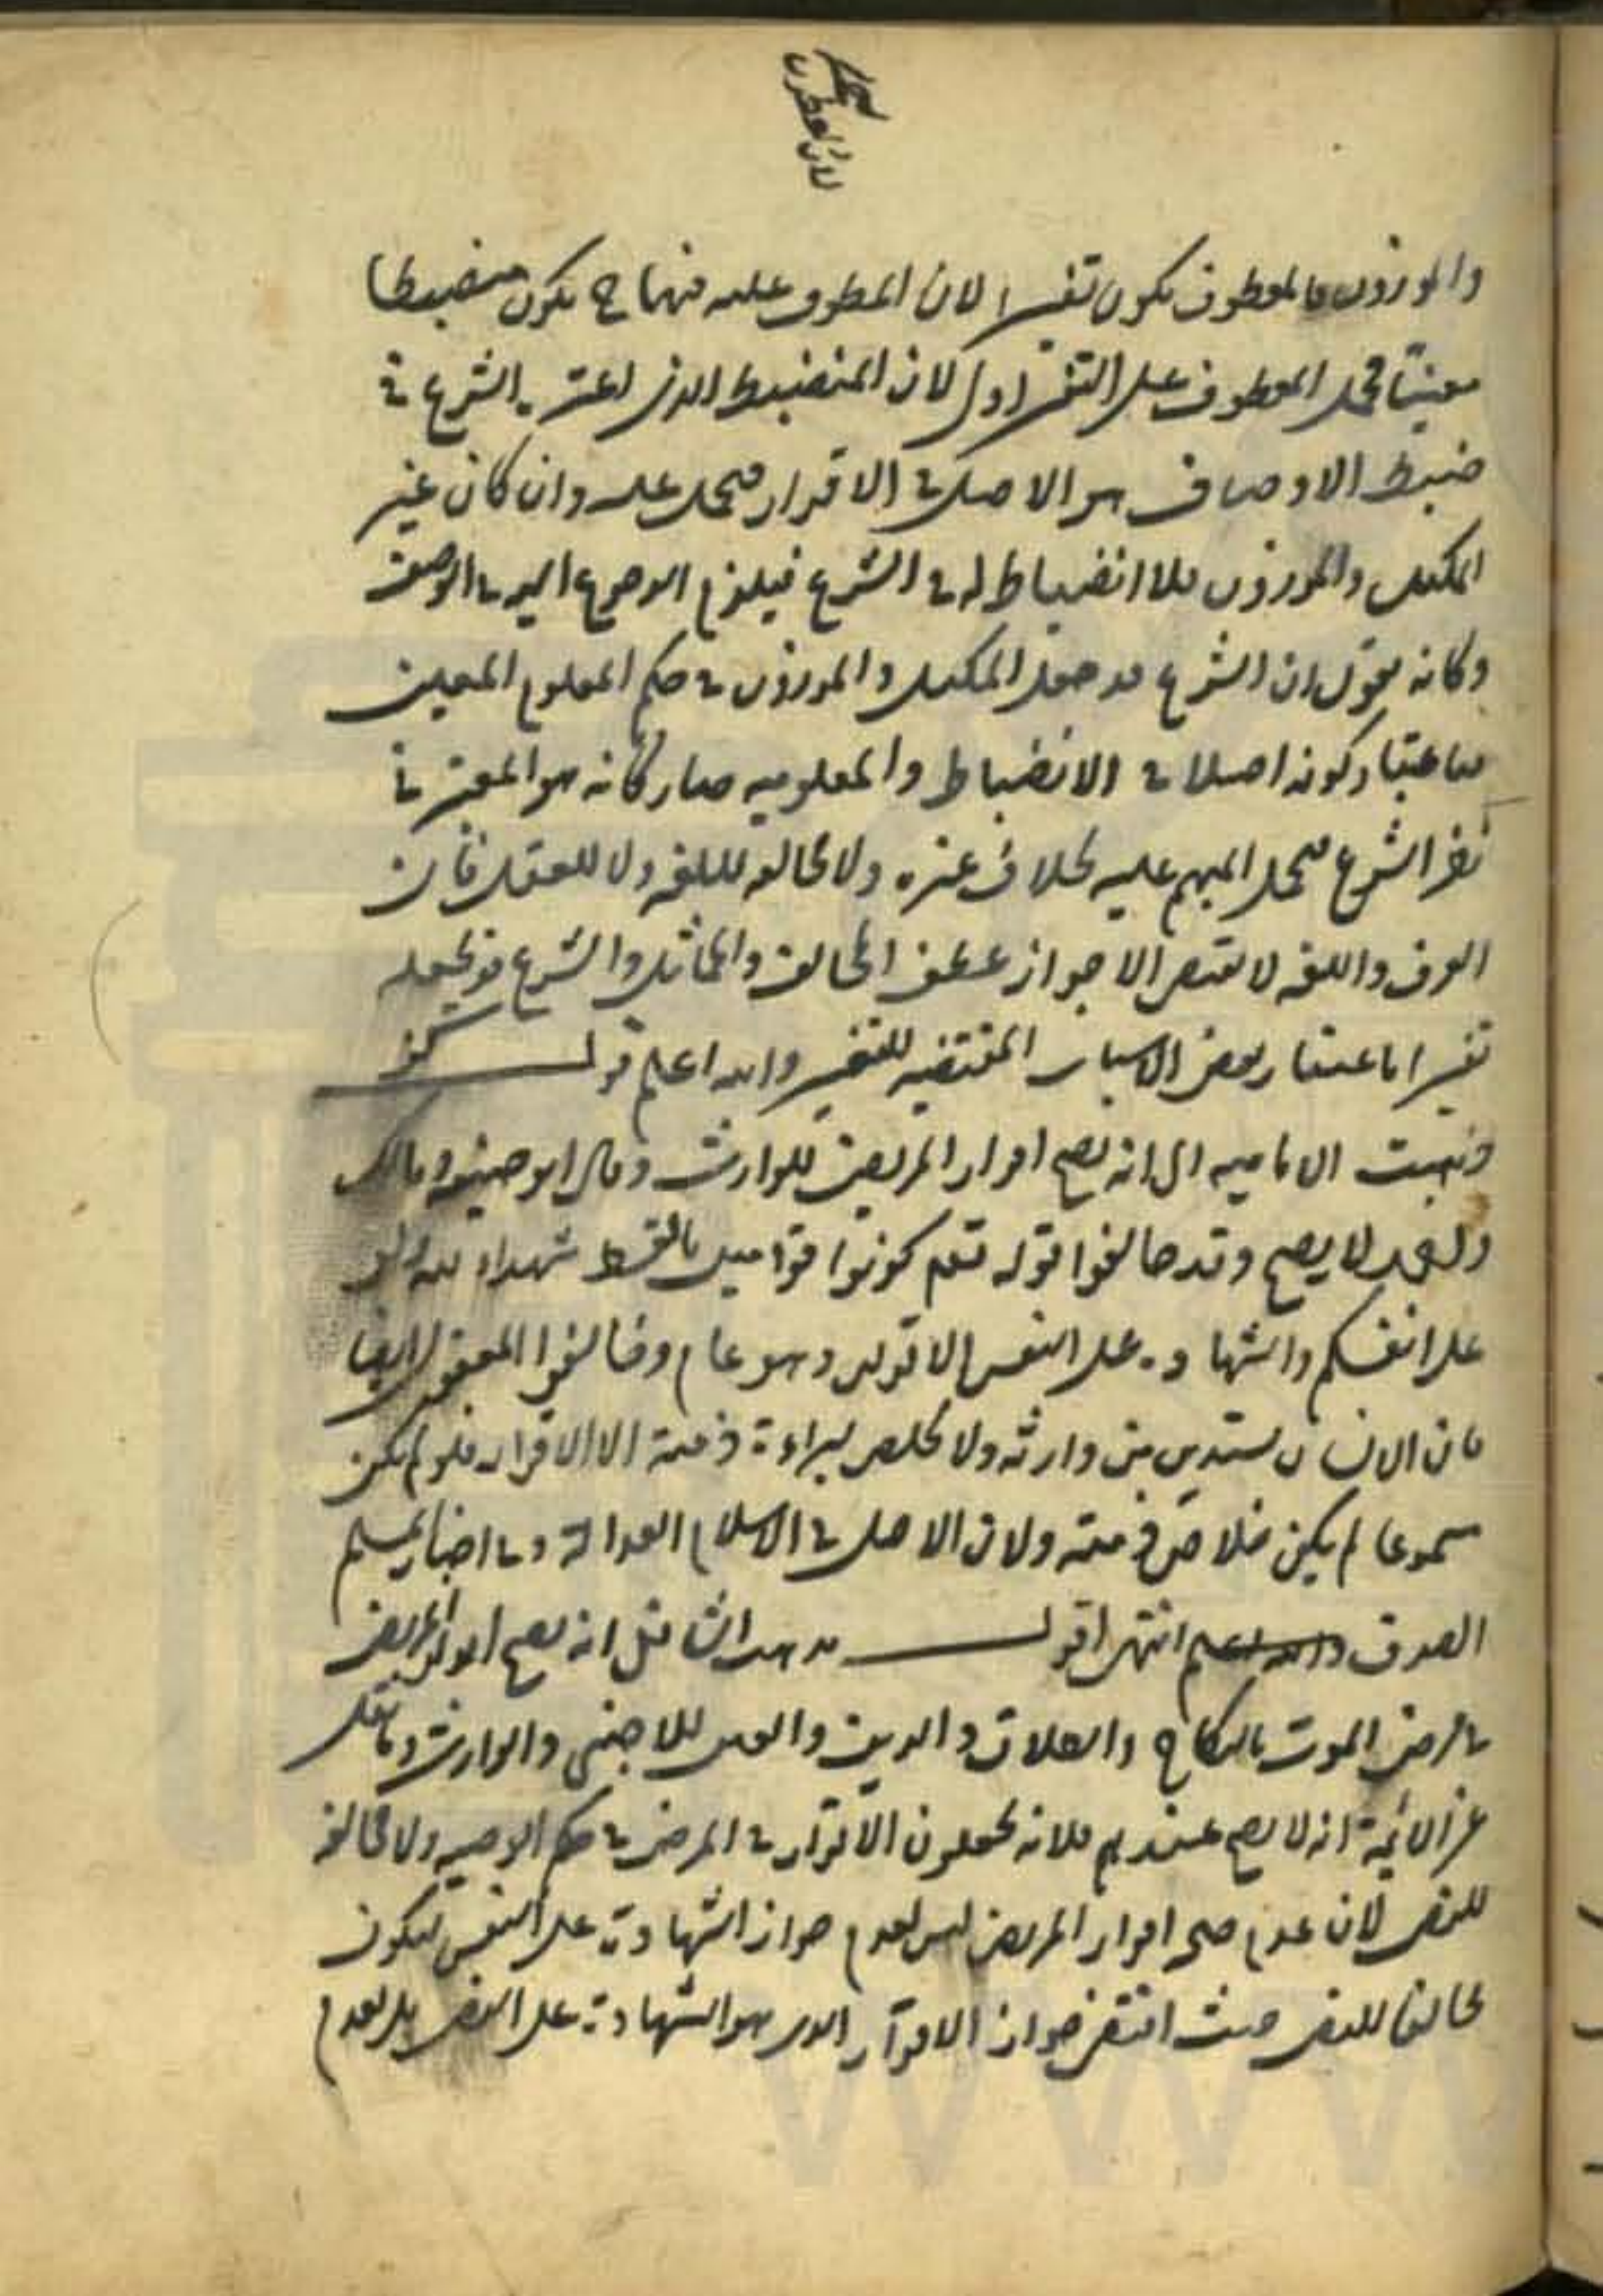 والموزون فالمعطوف يكون تفسيرا لان المعطوف عليه منهما ح يكون منضبطا
معينا فحمل المعطوف على التفسير اولى لان المنضبط الذى اعتبره الشرع فى
ضبط الاوصاف هو الاصل فى الاقرار فيحمل عليه وان كان غير
المكيل والموزون فلا انضباط له فى الشرع فيلزم الرجوع اليه فى الوصف
وكانه يقول ان الشرع قد جعل المكيل والموزون فى حكم المعلوم المعين
فباعتبار كونه اصلا فى الانضباط والمعلوميه صار كانه هو المعتبر فى
نظر الشرع فيحمل المبهم عليه بخلاف غيره ولا مخالفه لللغه ولا للعقل فان
العرف واللغه لا تقتضى الا جواز عطف المخالف والمماثل والشرع قد يجعله
تفسيرا باعتبار بعض الاسباب المقتضيه للتفسير والله اعلم قوله
وذهبت الاماميه الى انه يصح اقرار المريض للوارث وقال ابو حنيفه ومالك
واحمد لا يصح وقد خالفوا قوله تعم كونوا قوامين بالقسط شهداء لله ولو
على انفسكم والشهادة على النفس الاقرار وهو عام وخالفوا المعقول ايضا
فان الانسان يستدين من وارثه ولا مخلص لبراءة ذمته الا الاقرار فلو لم يكن
مسموعا لم يكن خلاص ذمته ولان الاصل فى الاسلام العدالة وفى اخبار المسلم
الصدق انتهى اقول مذهب الشافعى انه يصح اقرار المريض
فى مرض الموت بالنكاح والطلاق والدين والعين للاجنبى والوارث وما نقل
عن الائمة انه لا يصح عندهم فلانهم يجعلون الاقرار فى المرض فى حكم الوصيه ولا مخالفه
للنص لان عدم صحه اقرار المريض ليس لعدم جواز الشهادة على النفس ليكون
مخالفا للنص حيث اقتضى جواز الاقرار الذى هو الشهادة على النفس بل لعدم